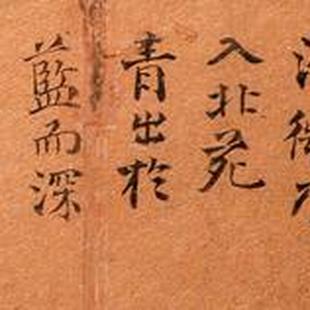 入北苑
青出於
藍而深